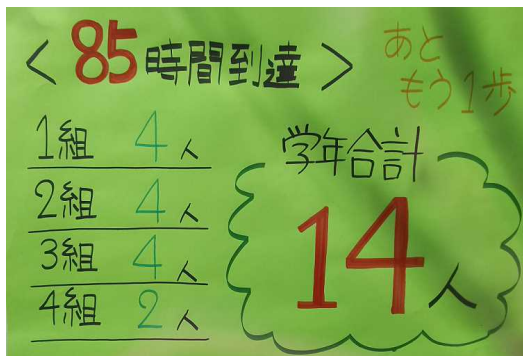 ＜85時間到達＞
あと
もう1歩
1組 4人
2組 4人
3組 4人
4組 2人
学年合計
14人